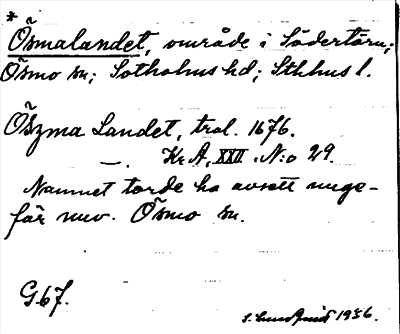 *
Ösmalandet, område i Södertörn;
Ösmo sn; Sotholms hd; Sthlms l.
Öszma Landet, tral. 1676.
—. Kr A, XXII. N:o 29.
Namnet torde ha avsett unge-
fär nuv. Ösmo sn.
G.67.
1936.